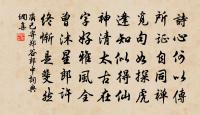 詩心何以傳
所證自同禪
覓句如探虎
逢知似得仙
神清太古在
字好雅風全
曾沐星郎許
終慚是斐然
己寄郑谷郎中詞典
網